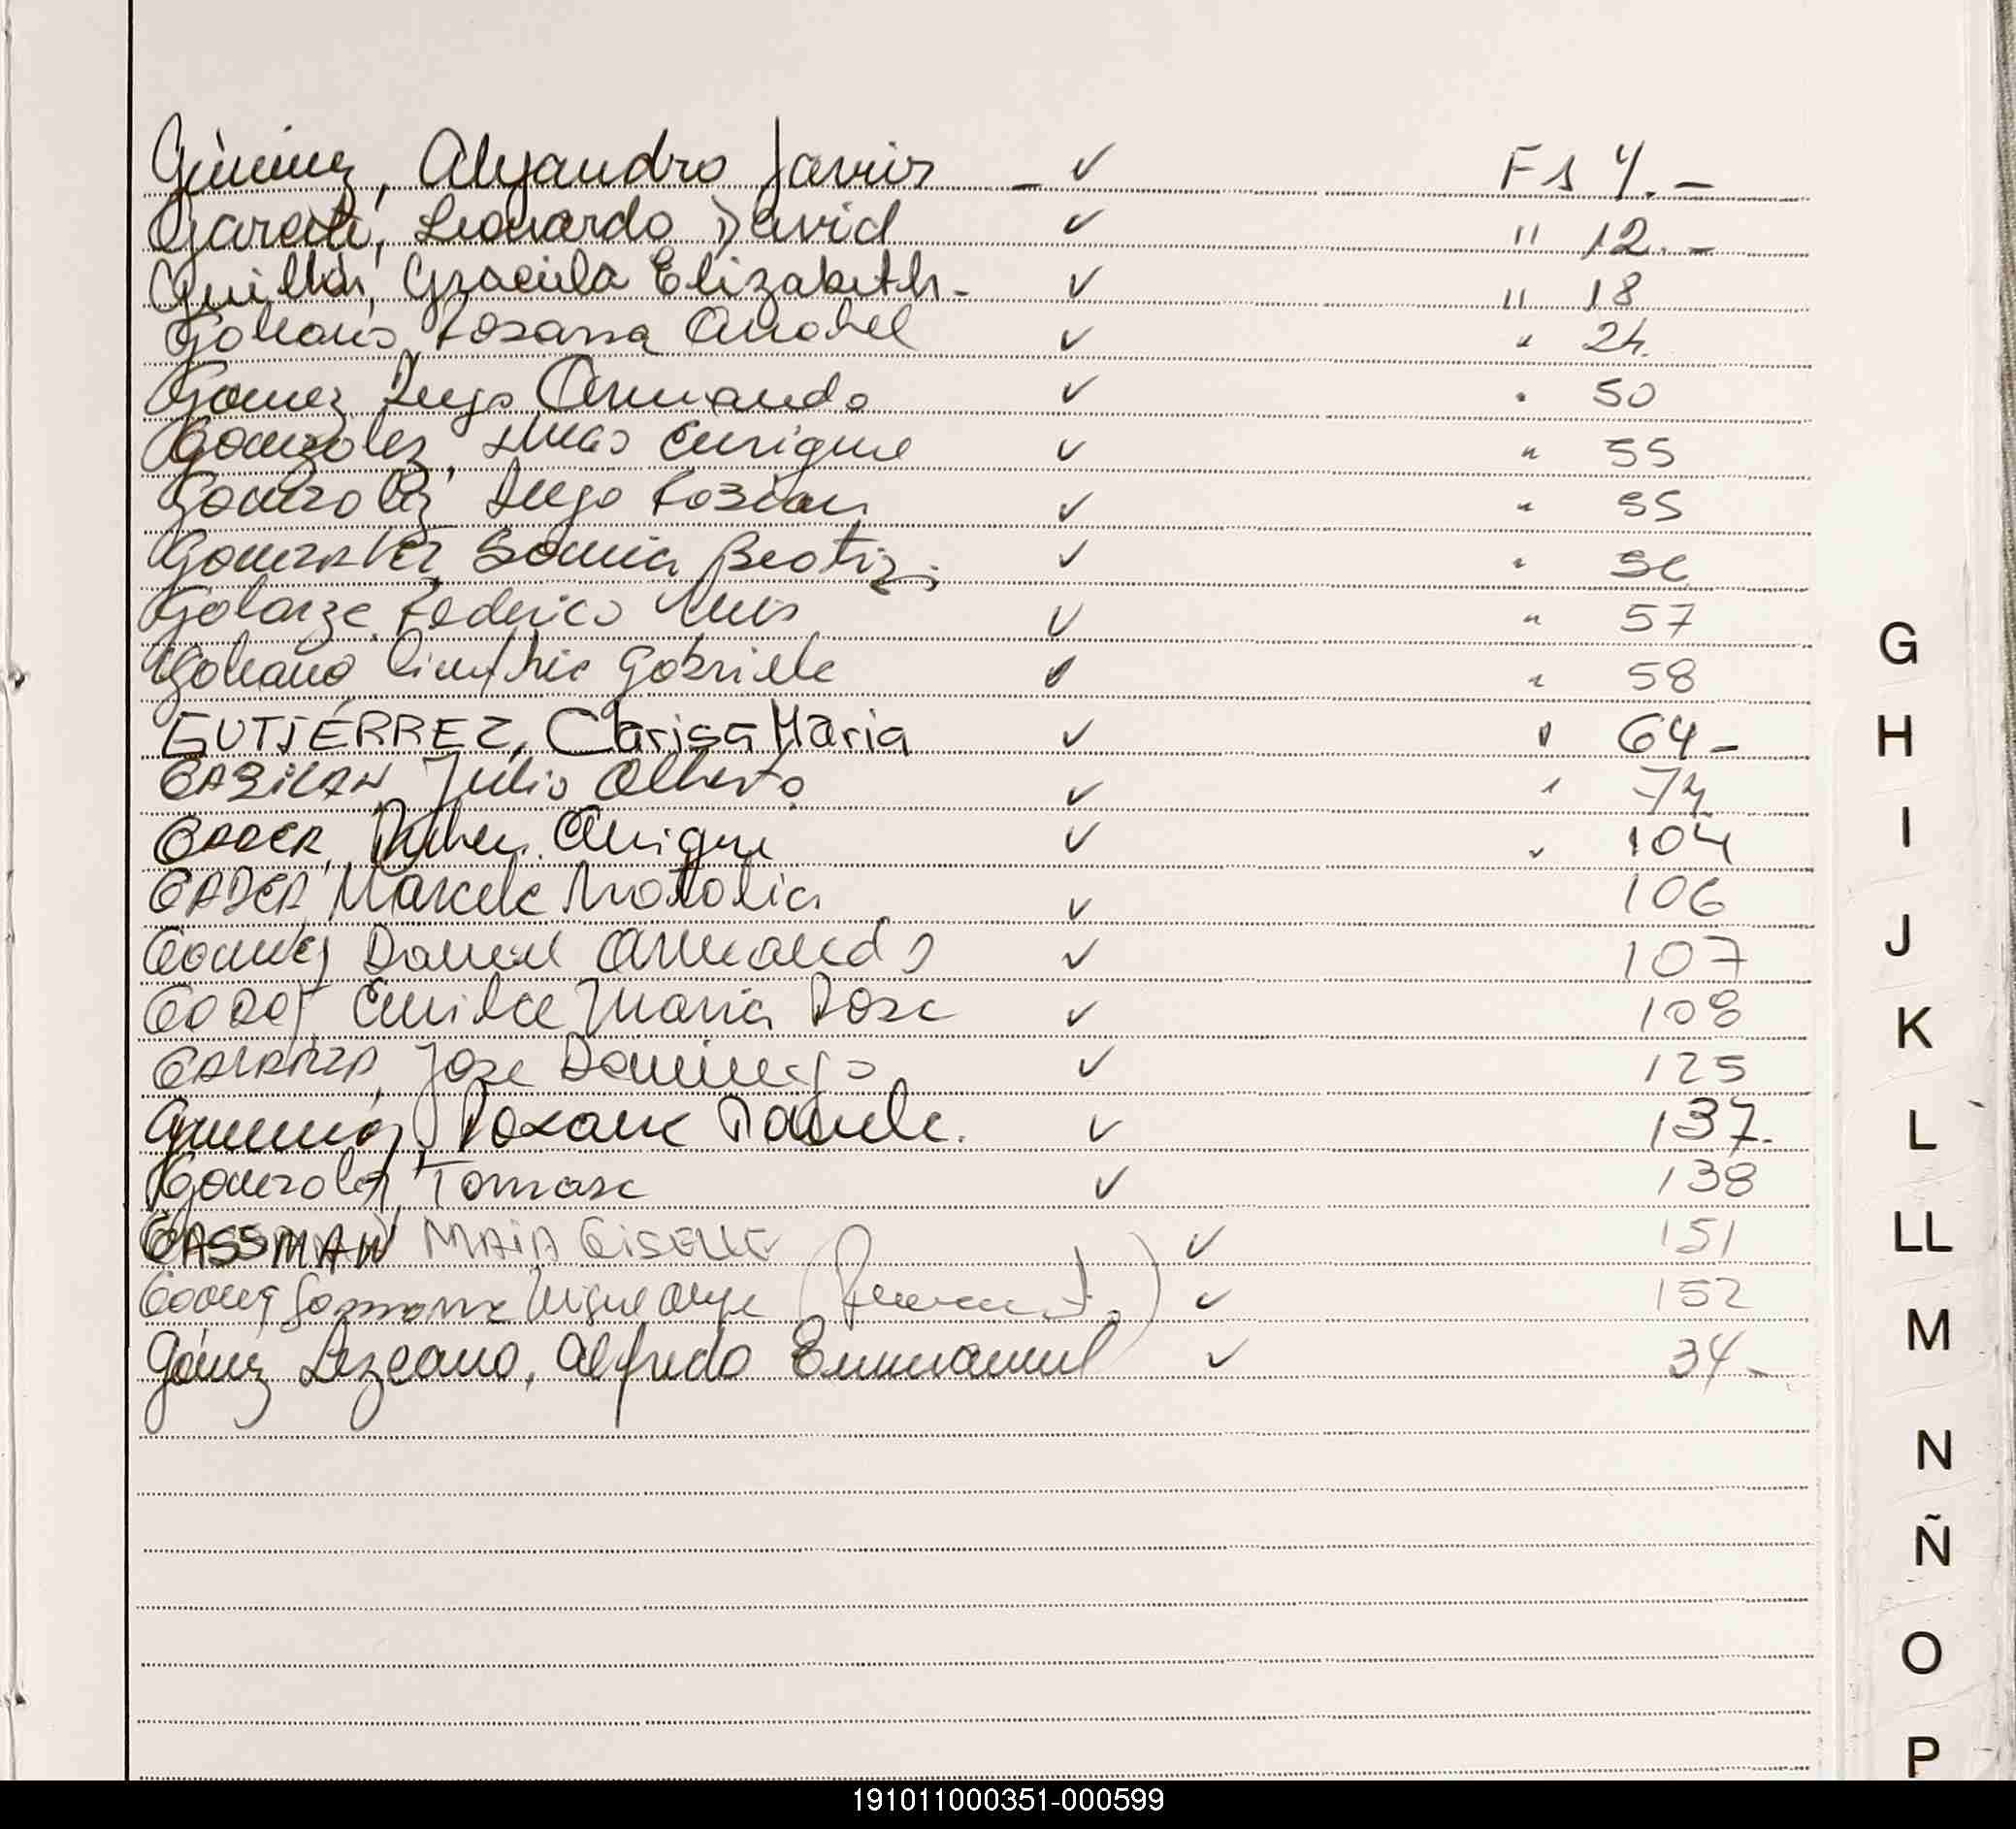 Giménez, Alejandro Javier - ✓ Fs 4.-
Garati, Leonardo David ✓ " 12.-
Guillén, Graciela Elizabeth - ✓ " 18
Rosana Anabel ✓ " 24.
Gomez Hugo Armando ✓ " 50
Gonzalez, Lucas Enrique ✓ " 55
Gonzalez Hugo Fabian ✓ " 55
Gonzalez, Sonia Beatriz. ✓ " 56
Galarze Federico Luis ✓ " 57
Cinthia Gabriela ✓ " 58
GUTIÉRREZ, Clarisa María ✓ " 64-
Julio Alberto ✓ " 74
GADER, Ruben Enrique ✓ " 104
GADER, Marcela Natalia ✓ 106
Gomez Daniel Armando ✓ 107
GODOY Emilce Maria Rosa ✓ 108
GALARZA, Jose Domingo ✓ 125
Roxana Daniela. ✓ 137.
Gonzalez, Tomasa ✓ 138
GASSMAN MAIA GISELLE ✓ 151
Miguel Angel ✓ 152
Gómez Lezcano, Alfredo Emmanuel ✓ 34-
G
H
I
J
K
L
LL
M
N
Ñ
O
P
191011000351-000599